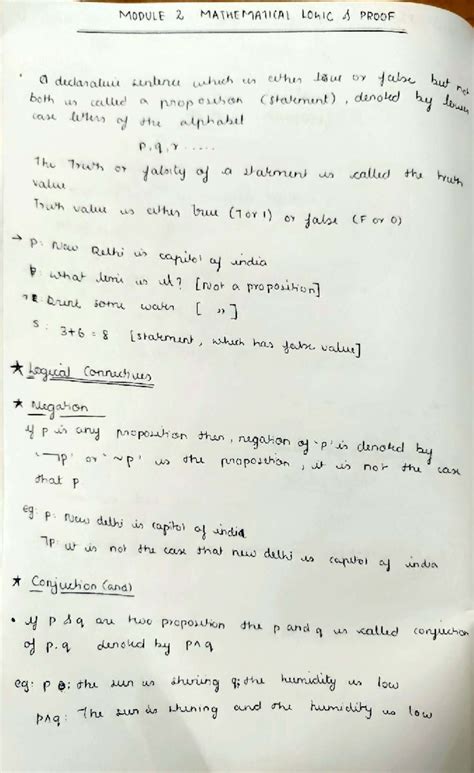 MODULE 2 MATHEMATICAL LOGIC & PROOF
• A declarative sentence which is either true or false but not
both is called a proposition (statement), denoted by lower
case letters of the alphabet
p, q, r .....
The Truth or falsity of a statement is called the truth
value
Truth value is either true (T or 1) or false (F or 0)
→ p: New Delhi is capitol of india
what time is it? [Not a proposition]
Drink some water [ " ]
s: 3+6 = 8 [statement, which has false value]
★ Logical Connectives
★ Negation
if p is any proposition then, negation of 'p' is denoted by
'¬p' or '~p' is the proposition, it is not the case
that p.
eg: p: New delhi is capitol of india
¬p: it is not the case that new delhi is capitol of india
★ Conjuction (and)
• if p & q are two proposition the p and q is called conjuction
of p. q denoted by p∧q
eg: p : the sun is shining q: the humidity is low
p∧q: The sun is shining and the humidity is low